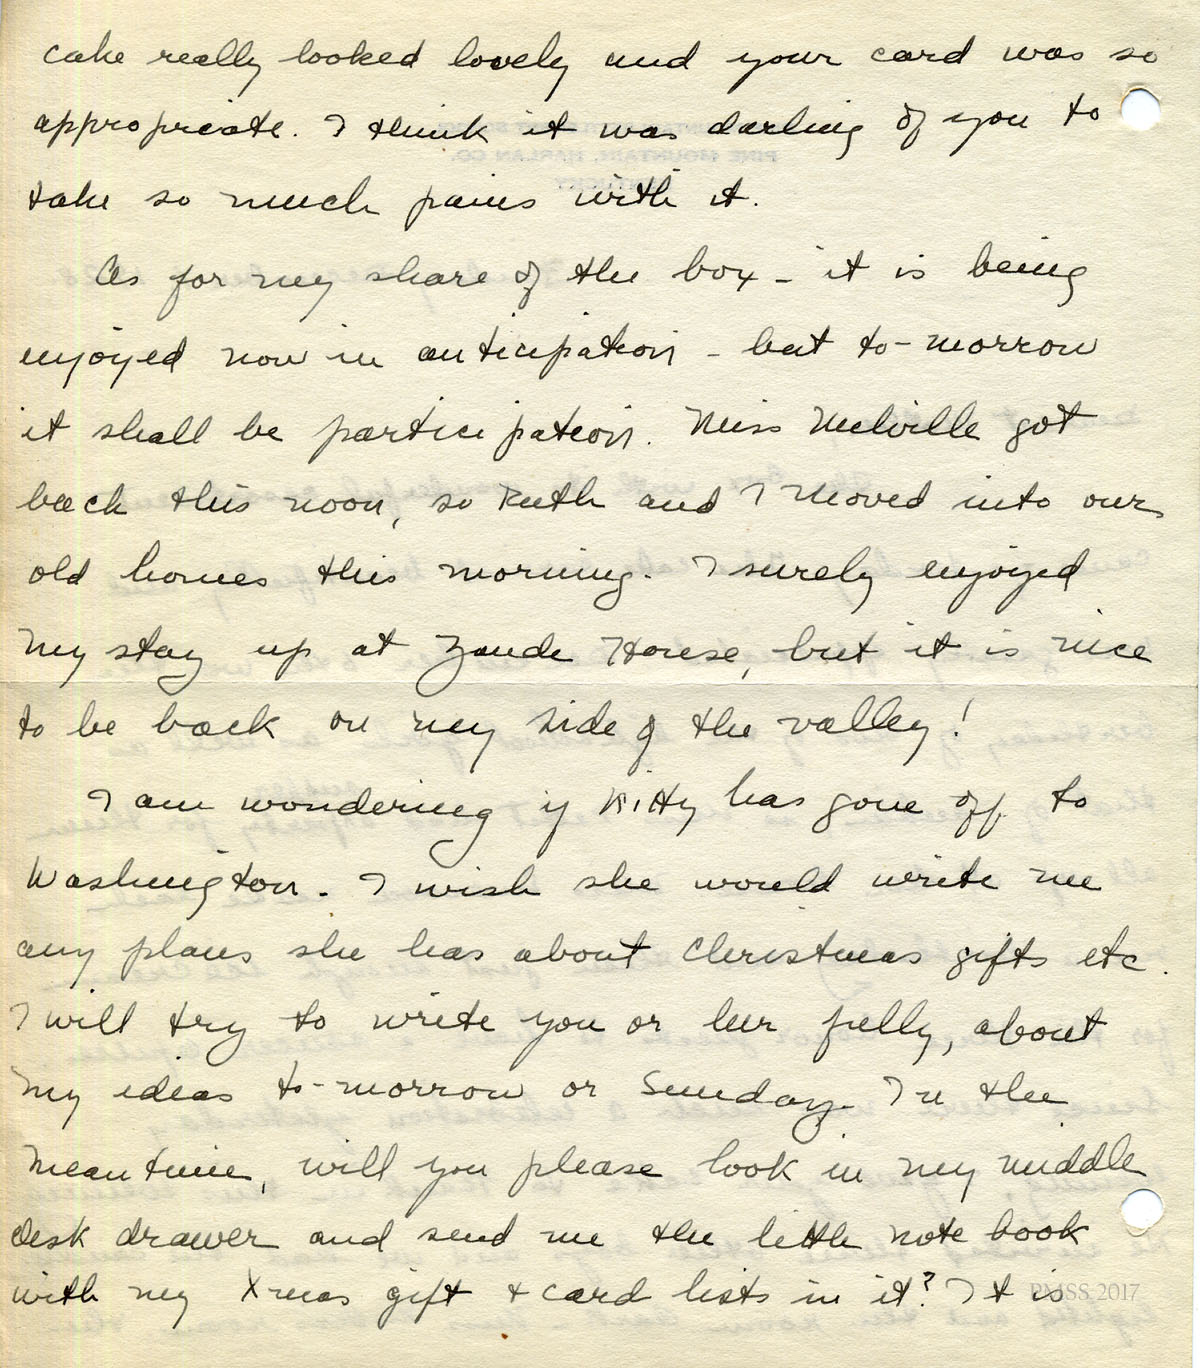 cake really looked lovely and your card was so
appropriate. I think it was darling of you to
take so much pains with it.
As for my share of the box - it is being
enjoyed now in anticipation - but to-morrow
it shall be participation. Miss Melville got
back this noon, so Ruth and I moved into our
old homes this morning. I surely enjoyed
my stay up at Zande House, but it is nice
to be back on my side of the valley!
I am wondering if Kitty has gone off to
Washington. I wish she would write me
any plans she has about Christmas gifts etc.
I will try to write you or her fully, about
my ideas to-morrow or Sunday. In the
meantime, will you please look in my middle
desk drawer and send me the little note book
with my Xmas gift + card lists in it? It is
PMSS 2017